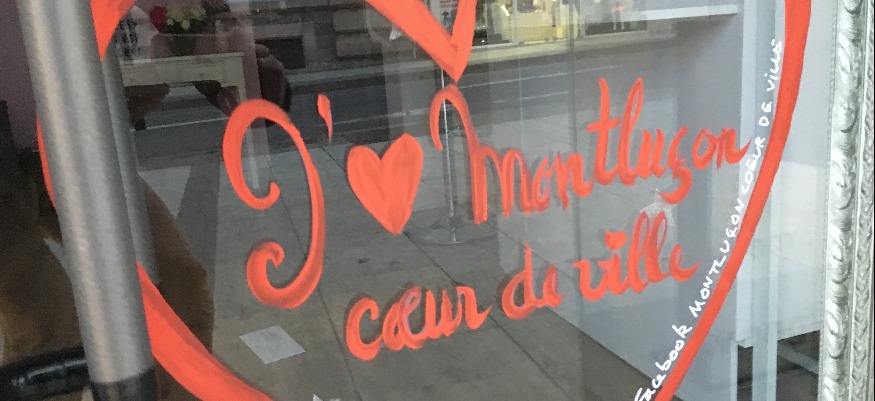 J'♥ Montluçon
cœur de ville
Facebook MONTLUÇON COEUR DE VILLE